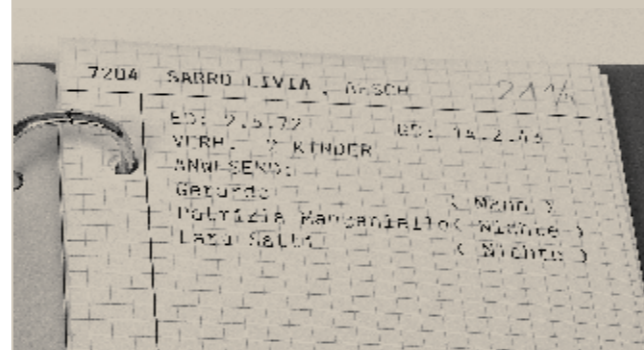 7204 SABRO LIVIA, AESCH
ED: 2.5.72 GD: 14.2.43
VERH. 2 KINDER
ANWESEND:
Gerardo (Mann)
Patrizia Manganiello (Nichte)
Lara (Nichte)